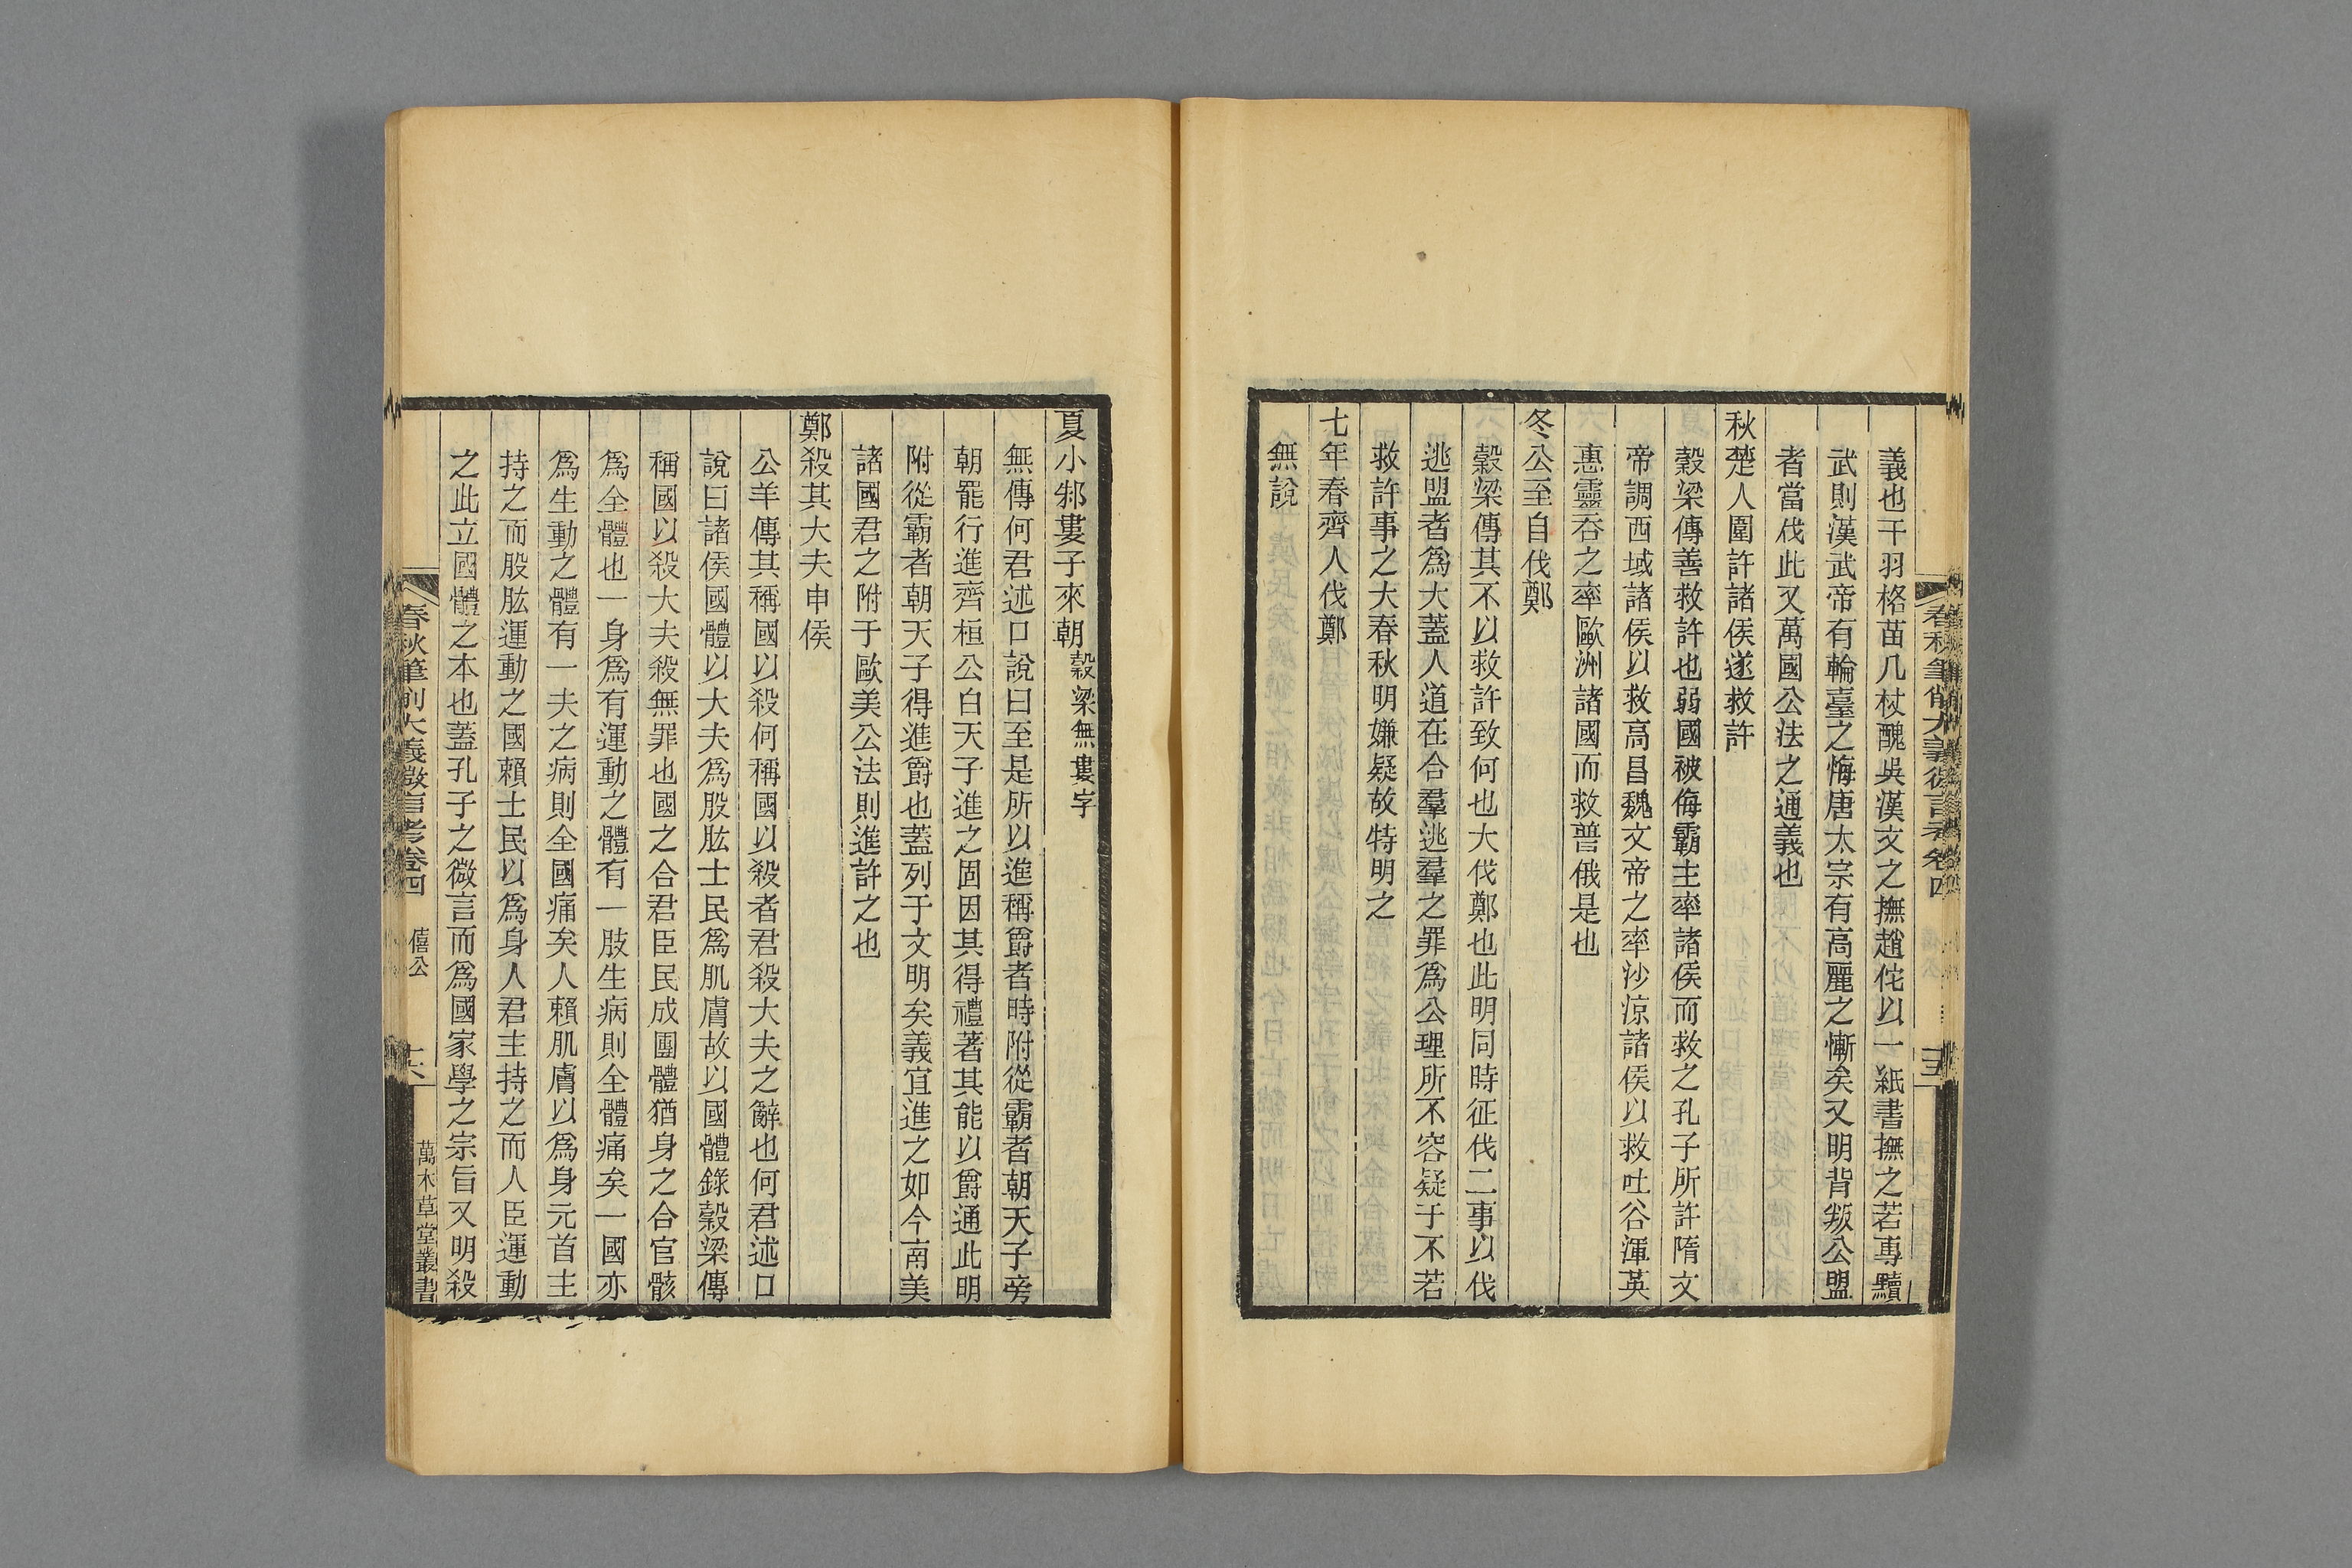 義也干羽格苗几杖醜吳漢文之撫趙佗以一紙書撫之若專黷
武則漢武帝有輪臺之悔唐太宗有高麗之慚矣又明背叛公盟
者當伐此又萬國公法之通義也
秋楚人圍許諸侯遂救許
穀梁傳善救許也弱國被侮霸主率諸侯而救之孔子所許隋文
帝調西域諸侯以救高昌魏文帝之率沙涼諸侯以救吐谷渾英
惠靈吞之率歐洲諸國而救普俄是也
冬公至自伐鄭
穀梁傳其不以救許致何也大伐鄭也此明同時征伐二事以伐
逃盟者爲大蓋人道在合羣逃羣之罪爲公理所不容疑于不若
救許事之大春秋明嫌疑故特明之
七年春齊人伐鄭
無說
夏小邾婁子來朝穀梁無婁字
無傳何君述口說曰至是所以進稱爵者時附從霸者朝天子旁
朝罷行進齊桓公白天子進之固因其得禮著其能以爵通此明
附從霸者朝天子得進爵也蓋列于文明矣義宜進之如今南美
諸國君之附于歐美公法則進許之也
鄭殺其大夫申侯
公羊傳其稱國以殺何稱國以殺者君殺大夫之辭也何君述口
說曰諸侯國體以大夫爲股肱士民爲肌膚故以國體錄穀梁傳
稱國以殺大夫殺無罪也國之合君臣民成團體猶身之合官骸
爲全體也一身爲有運動之體有一肢生病則全體痛矣一國亦
爲生動之體有一夫之病則全國痛矣人賴肌膚以爲身元首主
持之而股肱運動之國賴士民以爲身人君主持之而人臣運動
之此立國體之本也蓋孔子之微言而爲國家學之宗旨又明殺
春秋筆削大義微言考卷四 僖公 十六 萬木草堂叢書